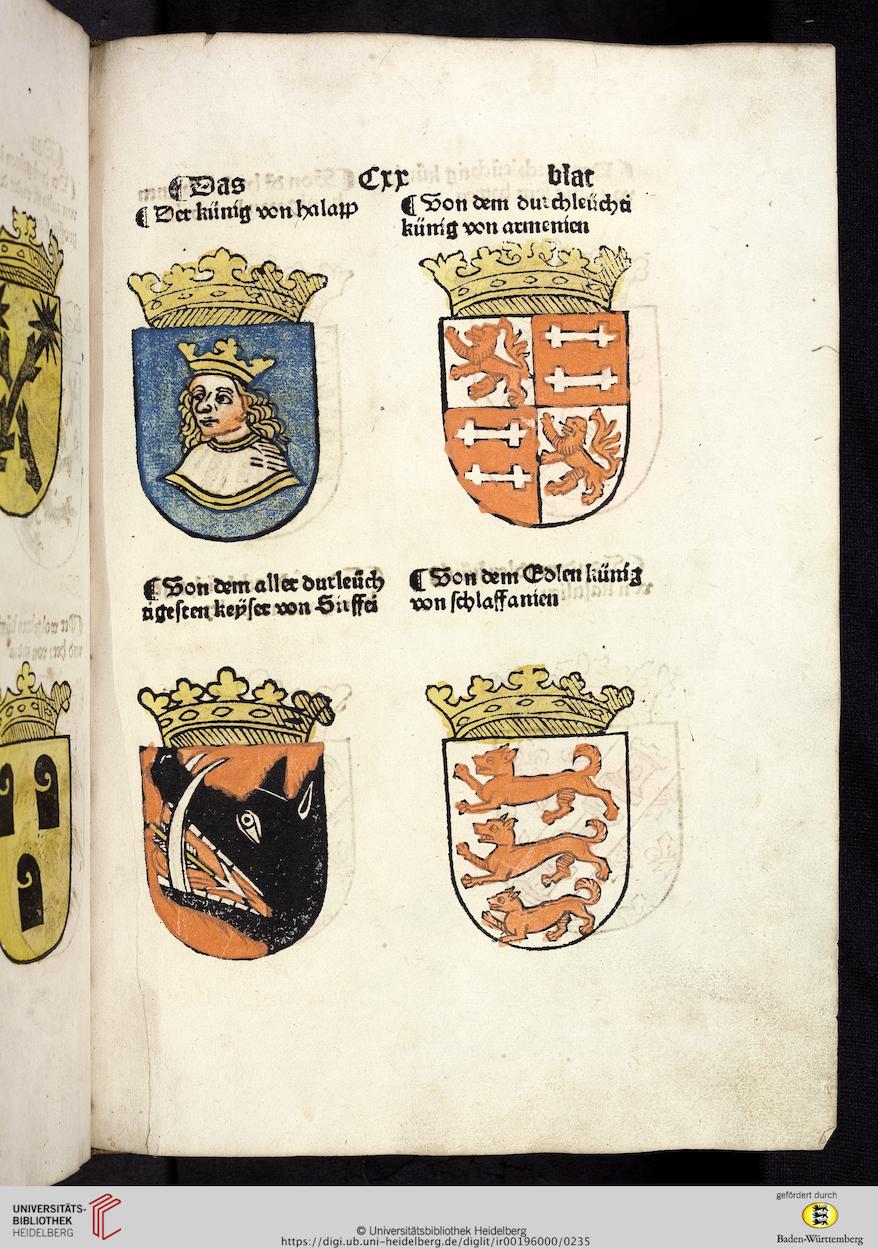 ¶Das Cxx blat
¶Der künig von halapp
¶Von dem durchleüchti
künig von armenien
¶Von dem aller durleüch
tigesten keÿser von Siiffei
¶Von dem Edlen künig
von schlaffanien
UNIVERSITÄTS-
BIBLIOTHEK
HEIDELBERG
© Universitätsbibliothek Heidelberg
https://digi.ub.uni-heidelberg.de/diglit/ir00196000/0235
gefördert durch
Baden-Württemberg